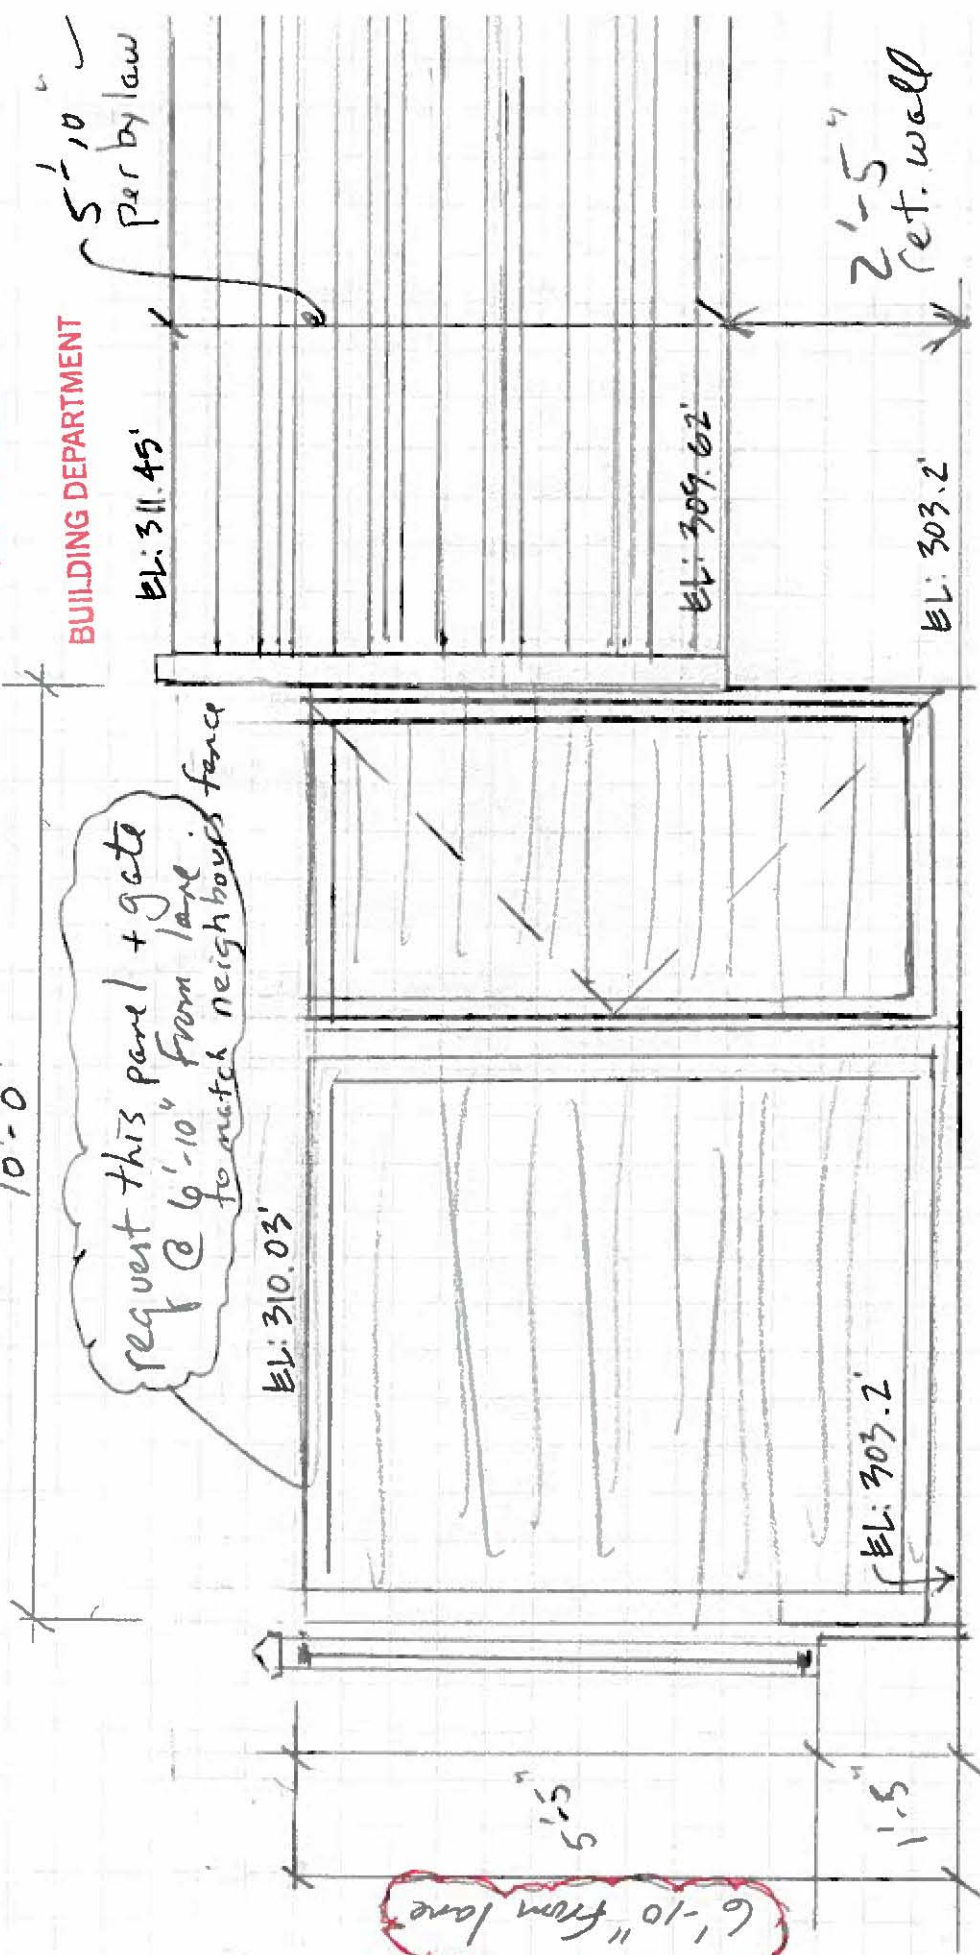 BUILDING DEPARTMENT
10'-0
5'-10" -
per bylaw
request this panel + gate
@ 6'-10" from lane
to match neighbours fence
EL: 311.45'
EL: 310.03'
EL: 309.62'
2'-5"
ret. wall
EL: 303.2'
EL: 303.2'
5'-5"
1'-5"
6'-10" from lane